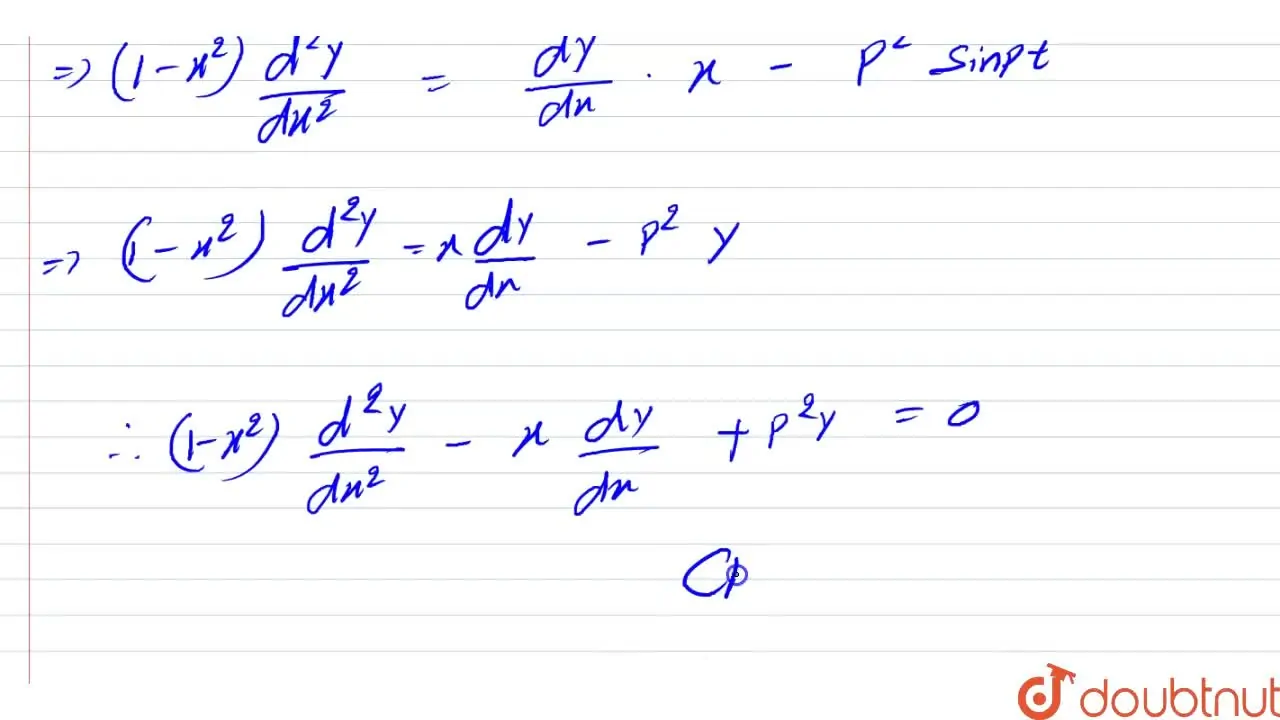 ⇒ (1-x²) d²y/dx² = dy/dx · x - p² sinpt
⇒ (1-x²) d²y/dx² = x dy/dx - p² y
∴ (1-x²) d²y/dx² - x dy/dx + p²y = 0
doubtnut